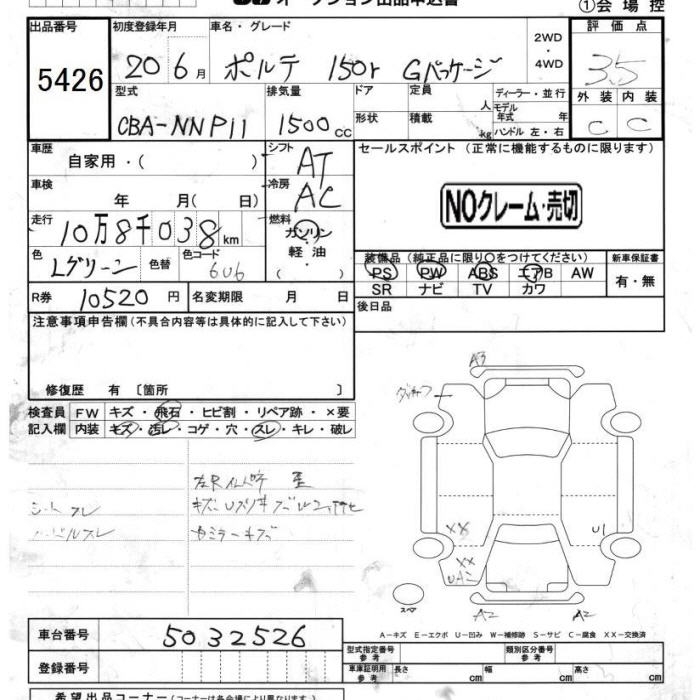 オークション出品申込書
①会場控
出品番号 5426
初度登録年月 20 6月
車名・グレード ポルテ 150r Gパッケージ
2WD・4WD
評価点 3.5
外装 C 内装 C
型式 CBA-NNP11
排気量 1500cc
ドア
形状
定員 人
積載 kg
ディーラー・並行
モデル年式 年
ハンドル 左・右
車歴 自家用・( )
シフト AT
セールスポイント(正常に機能するものに限ります)
NOクレーム・売切
車検 年 月( 日)
冷房 AC
走行 10万8千038km
燃料 ガソリン
軽油・
( )
色 Lグリーン 色替 色コード 6U6
装備品(純正品に限り○をつけてください)
PS PW ABS エアB AW
SR ナビ TV カワ
新車保証書
有・無
R券 10520円 名変期限 月 日
後日品
注意事項申告欄(不具合内容等は具体的に記入して下さい)
修復歴 有〔箇所 〕
検査員 FW キズ・飛石・ヒビ割・リペア跡・×要
記入欄 内装 キズ・汚レ・コゲ・穴・スレ・キレ・破レ
シートスレ
ハンドルスレ
A3
XX
U1
XX
UA2
A2
A2
スペア
A-キズ E-エクボ U-凹み W-補修跡 S-サビ C-腐食 XX-交換済
車台番号 5032526
登録番号
型式指定番号
類別区分番号
車庫証明用参考 長さ cm 幅 cm 高さ cm
希望出品コーナー(コーナーは各会場により異なります)